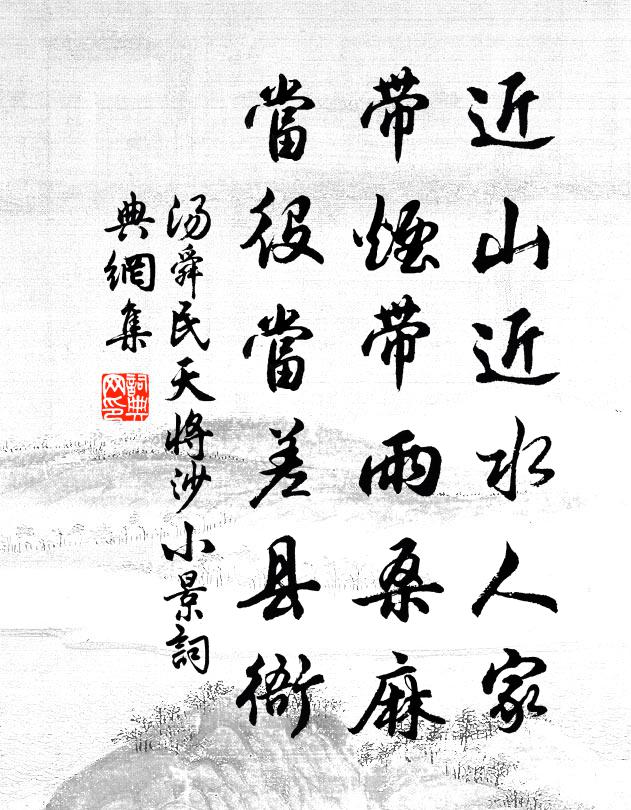 近山近水人家
带煙带雨桑麻
當役當差县衙
汤舜民天将沙小景詞
典網集
詞典网印